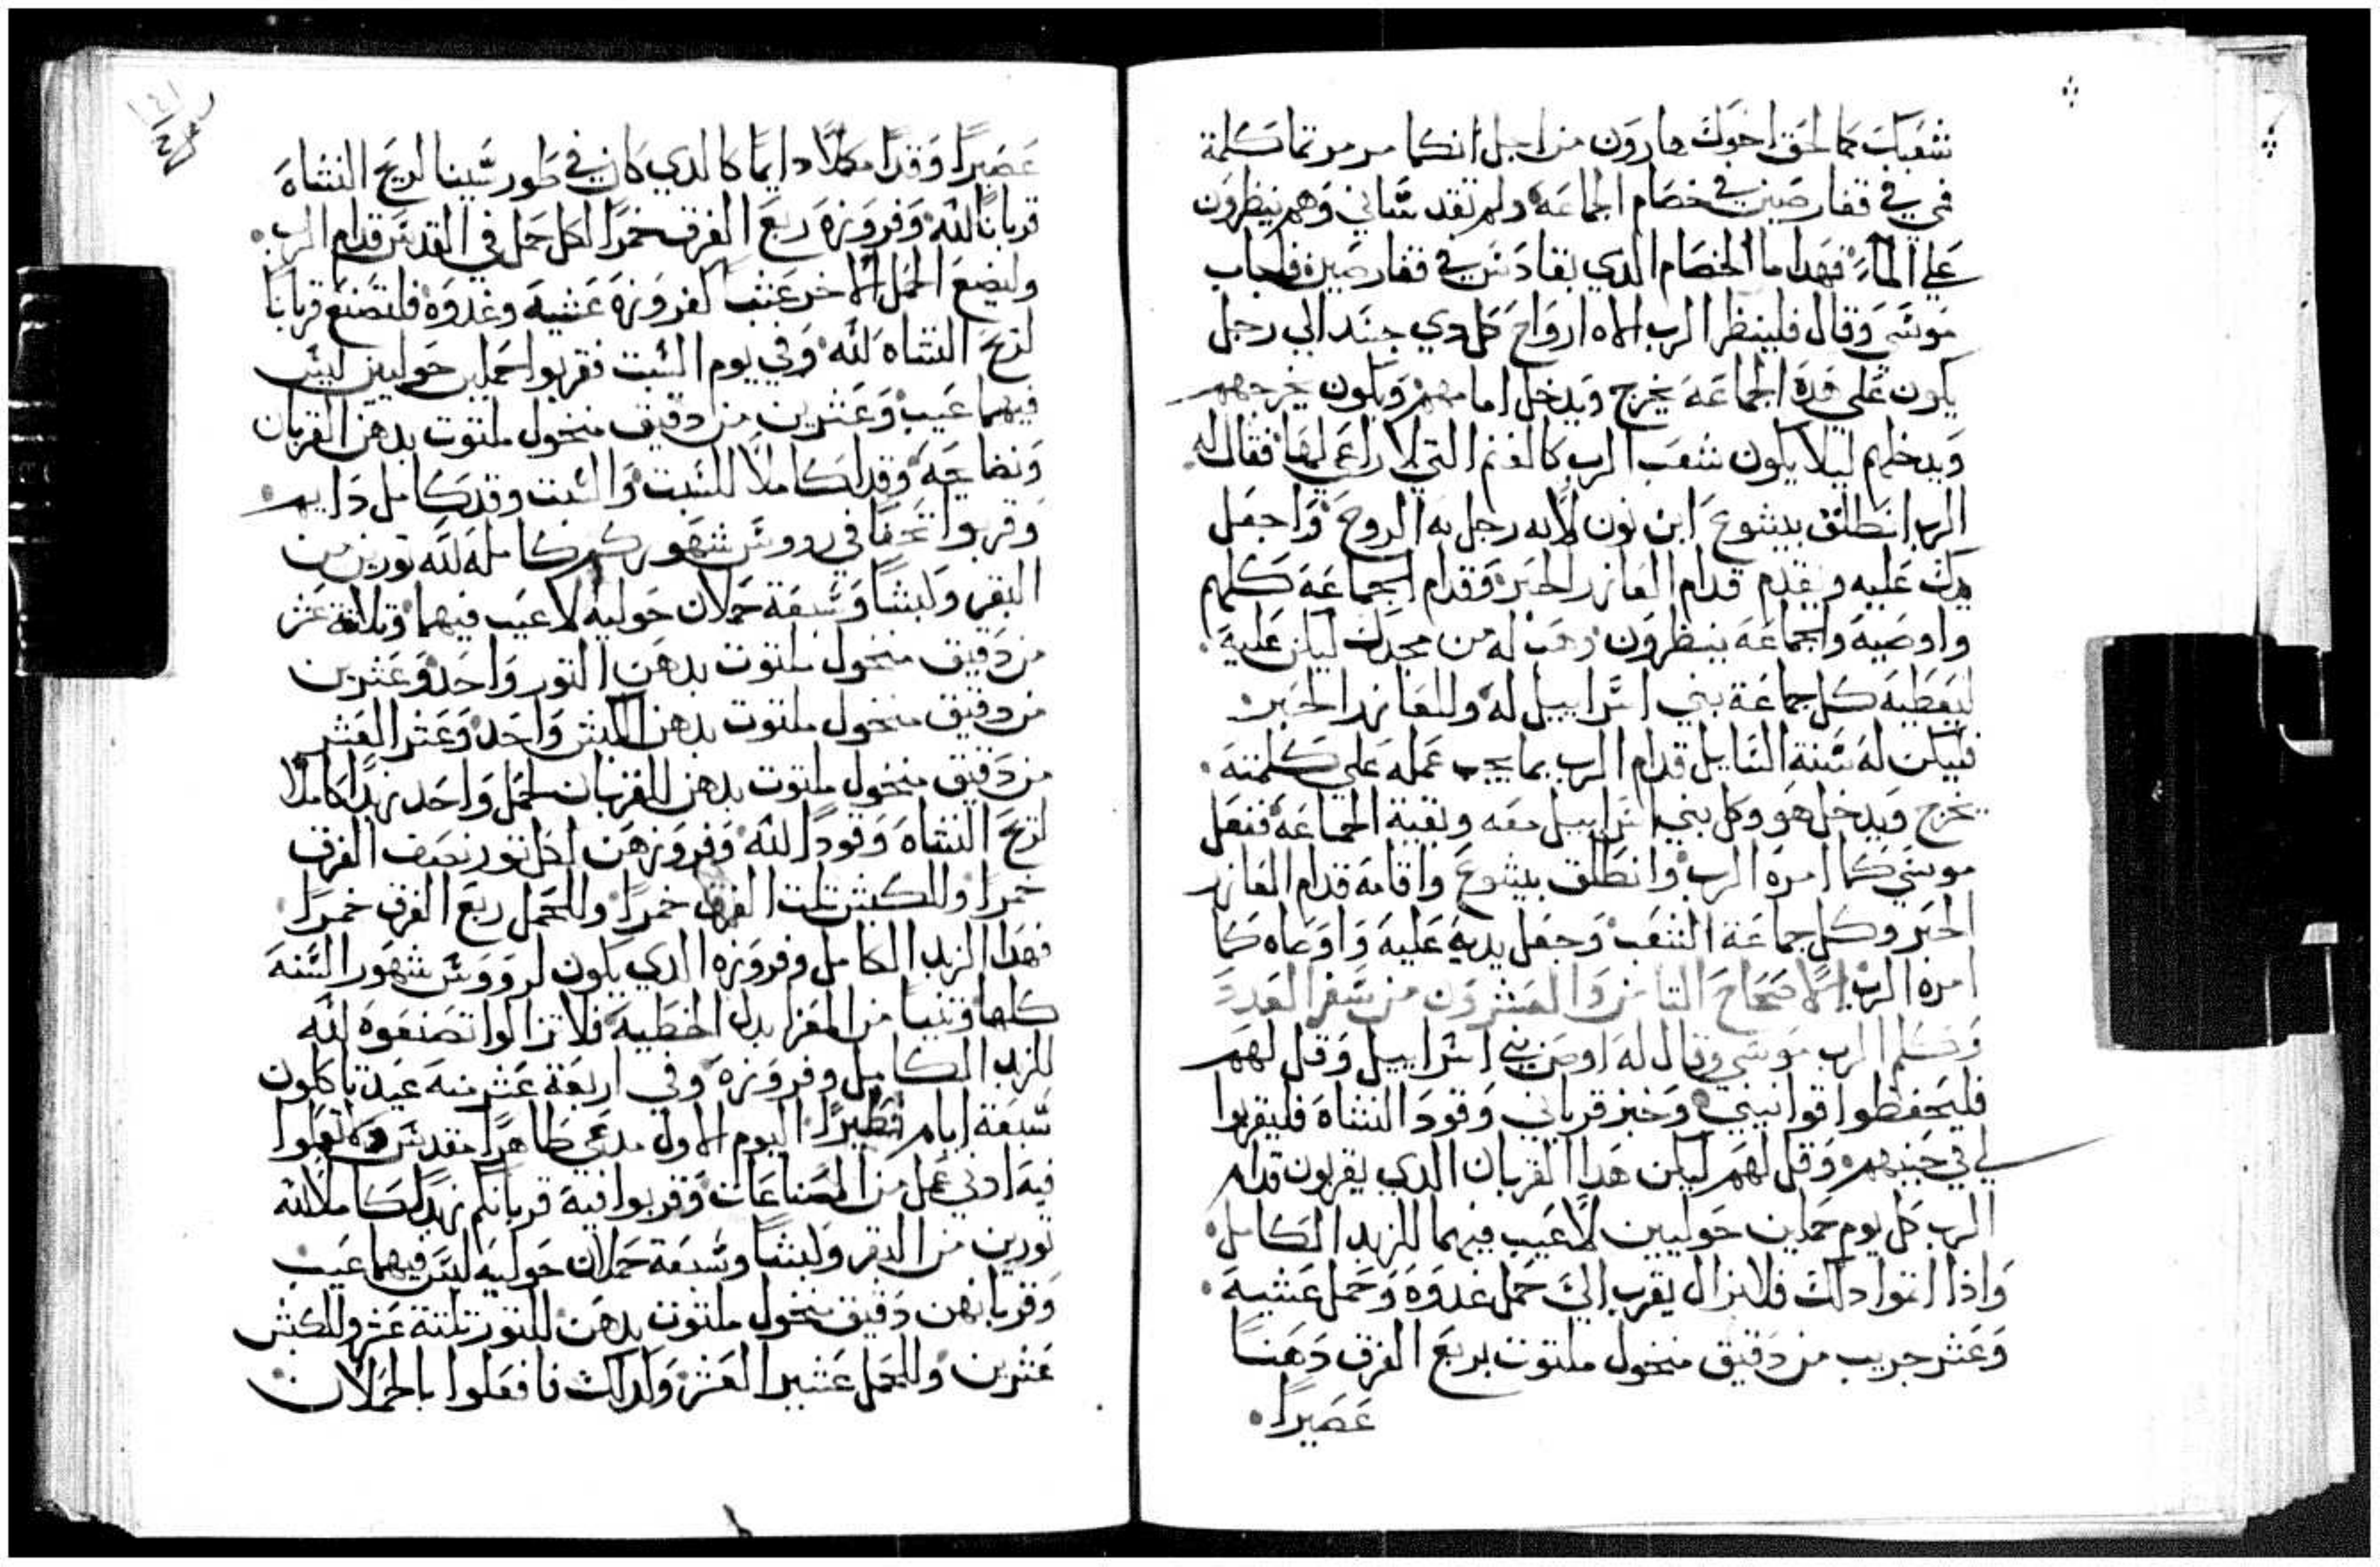 شعبك كما لحق اخوك هارون من اجل انكما مرمرتما كلمة
في في قفار صين في خصام الجماعة ولم تقدساني وهم ينظرون
علي الماء فهدا ما الخصام الدي بقادس في قفار صين فاجاب
موسي وقال فلينظر الرب الاه ارواح كل دي جسد الي رجل
يكون علي هده الجماعة يخرج ويدخل امامهم ويكون يخرجهم
ويدخلهم ليلا يكون شعب الرب كالغنم التي لا راعي لها فقال له
الرب انطلق بيشوع ابن نون لانه رجل به الروح واجعل
يدك عليه ويقدم قدام العازر الحبر وقدام الجماعة كلهم
واوصيه والجماعة ينظرون وهب له من مجدك ليكن عليه
ليعطيه كل جماعة بني اسراييل له وللعازر الحبر
فيكن له سنة السايل قدام الرب بما يجب عمله علي كلمته
يخرج ويدخل هو وكل بني اسراييل معه وبقية الجماعة ففعل
موسي كما امره الرب وانطلق بيشوع واقامه قدام العازر
الحبر وكل جماعة الشعب وجعل يديه عليه واوصاه كما
امره الرب الاصحاح التامن والعشرون من سفر العدد
وكلم الرب موسي وقال له اوص بني اسراييل وقل لهم
فليحفظوا قوانيني وخبز قرباني وقود النشاه فليقربوا
لي في حينهم وقل لهم ليكن هدا القربان الدي يقربون قدام
الرب كل يوم حملين حوليين لا عيب فيهما للزبد الكامل
وادا اتوا دلك فلا يزال يقرب الي حمل غدوه وحمل عشية
وعشر جريب من دقيق منخول ملتوت بربع الفرق دهنا
عصيرا
عصيرا وقدا مكملا دايما كالدي كان في طور سينا لريح النشاه
قربانا لله وفروزه ربع الفرق خمرا لكل حمل في القدس قدام الرب
وليضع الحمل الاخر عشيا كفروزه عشية وغدوه فلتصنع قربانا
لريح النشاه لله وفي يوم السبت فقربوا حملين حوليين ليس
فيهما عيب وعشرين من دقيق منخول ملتوت بدهن القربان
ونضايحه وقدا كاملا للسبت والسبت وقد كامل دايم
وقربوا تحفا في رووس شهوركم كاملة لله تورين من
البقر وكبشا وسبعة حملان حولية لا عيب فيهما وتلاتة عشر
من دقيق منخول ملتوت بدهن التور واحد وعشرين
من دقيق منخول ملتوت بدهن الكبش واحد وعشر العشر
من دقيق منخول ملتوت بدهن القربان لحمل واحد زبدا كاملا
لريح النشاه وقودا لله وفروزهن لكل تور نصف الفرق
خمرا وللكبش تلت الفرق خمرا وللحمل ربع الفرق خمرا
فهدا الزبد الكامل وفروزه الدي يكون لرووس شهور السنة
كلها وتنيا من المعزا بدل الخطية فلا تزالوا تصنعوه لله
للزبد الكامل وفروزه وفي اربعة عشر منه عيد تاكلون
سبعة ايام فطيرا اليوم الاول مدعي طاهرا مقدس ولا تعملوا
فيه ادني عمل من الصناعات وقربوا فيه قربانكم زبدا كاملا لله
تورين من البقر وكبشا وسبعة حملان حولية ليس فيهما عيب
وقربانهن دقيق منخول ملتوت بدهن للتور تلتة عشر وللكبش
عشرين وللحمل عشير العشر وكدلك فافعلوا بالحملان